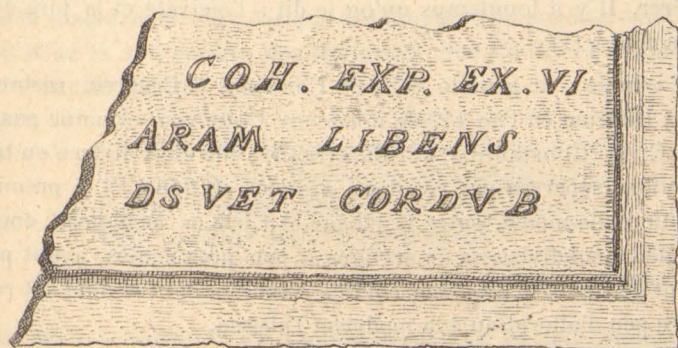 COH. EXP. EX. VI
ARAM LIBENS
DS VET CORDVB